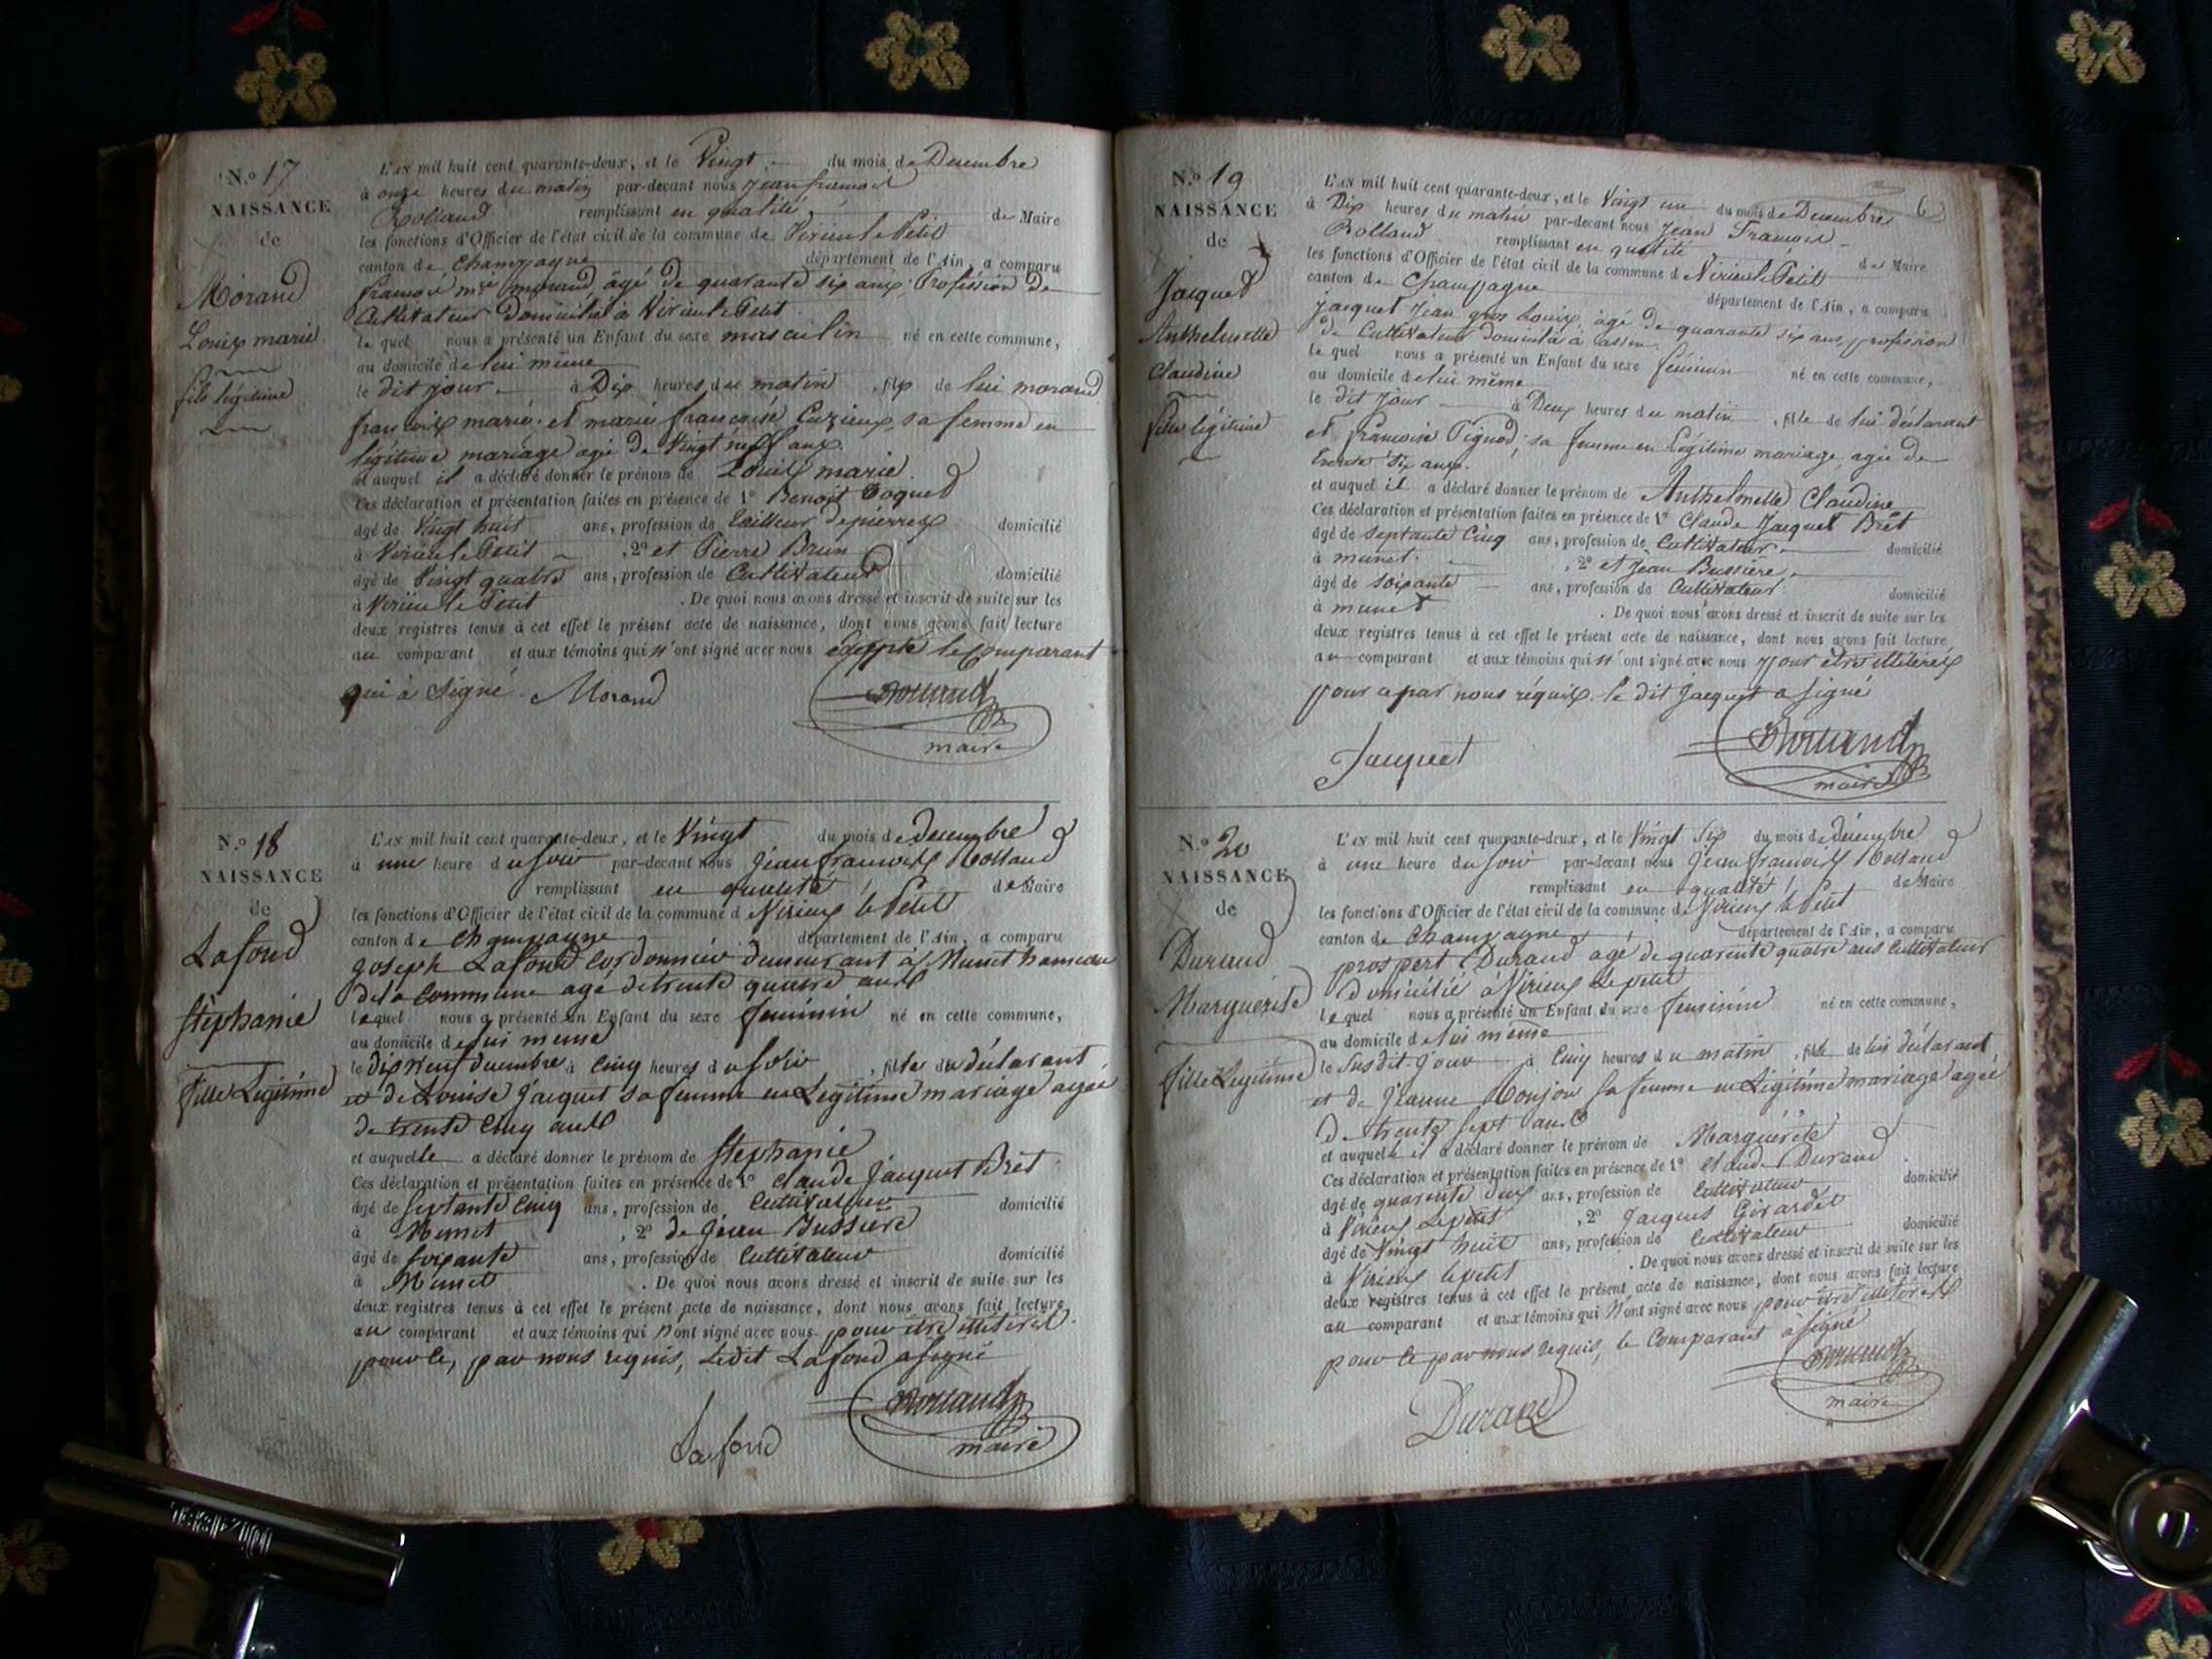 N.o 17
NAISSANCE
de
Morand
Louis marie
fils légitime
L'AN mil huit cent quarante-deux, et le Vingt du mois de Decembre
à onze heures du matin par-devant nous Jean françois
Rolland remplissant en qualité de Maire
les fonctions d'Officier de l'état civil de la commune de Virieu le Petit
canton de Champagne département de l'Ain, a comparu
françois mie morand âgé de quarante six ans, Profession de
Cultivateur domicilié à Virieu le Petit
le quel nous a présenté un Enfant du sexe masculin né en cette commune,
au domicile de lui même
le dit jour à Dix heures du matin, fils de lui morand
françois marie et marie françoise sa femme en
légitime mariage agée de Vingt neuf ans
et auquel il a déclaré donner le prénom de Louis marie
Ces déclaration et présentation faites en présence de 1o Benoit Boquet
âgé de Vingt huit ans, profession de tailleur de pierres domicilié
à Virieu le Petit, 2o et Pierre Brun
âgé de Vingt quatre ans, profession de Cultivateur domicilié
à Virieu le Petit. De quoi nous avons dressé et inscrit de suite sur les
deux registres tenus à cet effet le présent acte de naissance, dont nous avons fait lecture
au comparant et aux témoins qui n'ont signé avec nous excepté le comparant
qui à signé. Morand Rolland
maire
N.o 18
NAISSANCE
de
Lafond
Stéphanie
fille Légitime
L'AN mil huit cent quarante-deux, et le Vingt du mois de decembre
à une heure du soir par-devant nous Jean françois Rolland
remplissant en qualité de Maire
les fonctions d'Officier de l'état civil de la commune d Virieu le Petit
canton de Champagne département de l'Ain, a comparu
Joseph Lafond Cordonnier demeurant à Munet hameau
de la Commune agé de trente quatre ans
lequel nous a présenté un Enfant du sexe feminin né en cette commune,
au domicile de lui meme
le dix neuf decembre à Cinq heures du soir, fille du déclarant
et de Louise Jacquet sa femme en Legitime mariage agée
de trente Cinq ans
et auquelle a déclaré donner le prénom de Stephanie
Ces déclaration et présentation faites en présence de 1o Claude Jacquet Brét
âgé de septante Cinq ans, profession de Cultivateur domicilié
à Munet, 2o de Jean Bussiere
âgé de soixante ans, profession de Cultivateur domicilié
à Munet. De quoi nous avons dressé et inscrit de suite sur les
deux registres tenus à cet effet le présent acte de naissance, dont nous avons fait lecture
au comparant et aux témoins qui nont signé avec nous pour être
pour ce, par nous requis, Ledit Lafond a signé
Rolland
Lafond maire
6
N.o 19
NAISSANCE
de
Jacquet
Anthelmette
Claudine
fille légitime
L'AN mil huit cent quarante-deux, et le Vingt un du mois de Decembre
à Dix heures du matin par-devant nous Jean Francois
Rolland remplissant en qualité de Maire
les fonctions d'Officier de l'état civil de la commune d Virieu le Petit
canton de Champagne département de l'Ain, a comparu
Jacquet Jean gros Louis, âgé de quarante six ans, profession
de Cultivateur domicilié à
le quel nous a présenté un Enfant du sexe féminin né en cette commune,
au domicile de lui même
le dit jour à Deux heures du matin, fille de lui déclarant
et françoise Pignod, sa femme en Légitime mariage, agée de
trente six ans.
et auquel il a déclaré donner le prénom de Anthelmette Claudine
Ces déclaration et présentation faites en présence de 1o Claude Jacquet Brét
âgé de septante Cinq ans, profession de Cultivateur domicilié
à munet, 2o et Jean Bussiere
âgé de soixante ans, profession de Cultivateur domicilié
à munet. De quoi nous avons dressé et inscrit de suite sur les
deux registres tenus à cet effet le présent acte de naissance, dont nous avons fait lecture
au comparant et aux témoins qui n'ont signé avec nous pour être
pour ce par nous réquis. le dit Jacquet a signé
Rolland
Jacquet maire
N.o 20
NAISSANCE
de
Durand
Marguerite
fille Legitime
L'AN mil huit cent quarante-deux, et le Vingt Six du mois de décembre
à une heure du soir par-devant nous Jean françois Rolland
remplissant en qualité de Maire
les fonctions d'Officier de l'état civil de la commune de Virieu le Petit
canton de Champagne département de l'Ain, a comparu
prospert Durand agé de quarente quatre ans Cultivateur
domicilié à Virieu Le petit
lequel nous a présenté un Enfant du sexe feminin né en cette commune,
au domicile de lui même
le susdit jour à Cinq heures du matin, fille de lui déclarant
et de Jeanne Monjou sa femme en Légitime mariage agée
de trente sept ans
et auquele il a déclaré donner le prénom de Marguérite
Ces déclaration et présentation faites en présence de 1o Claude Durand
âgé de quarente deux ans, profession de Cultivateur domicilié
à Virieu Le petit, 2o Jacques Girardet
âgé de Vingt huit ans, profession de Cultivateur domicilié
à Virieu le petit. De quoi nous avons dressé et inscrit de suite sur les
deux registres tenus à cet effet le présent acte de naissance, dont nous avons fait lecture
au comparant et aux témoins qui n'ont signé avec nous pour être
pour ce par nous requis, le Comparant à signé
Rolland
Durand maire